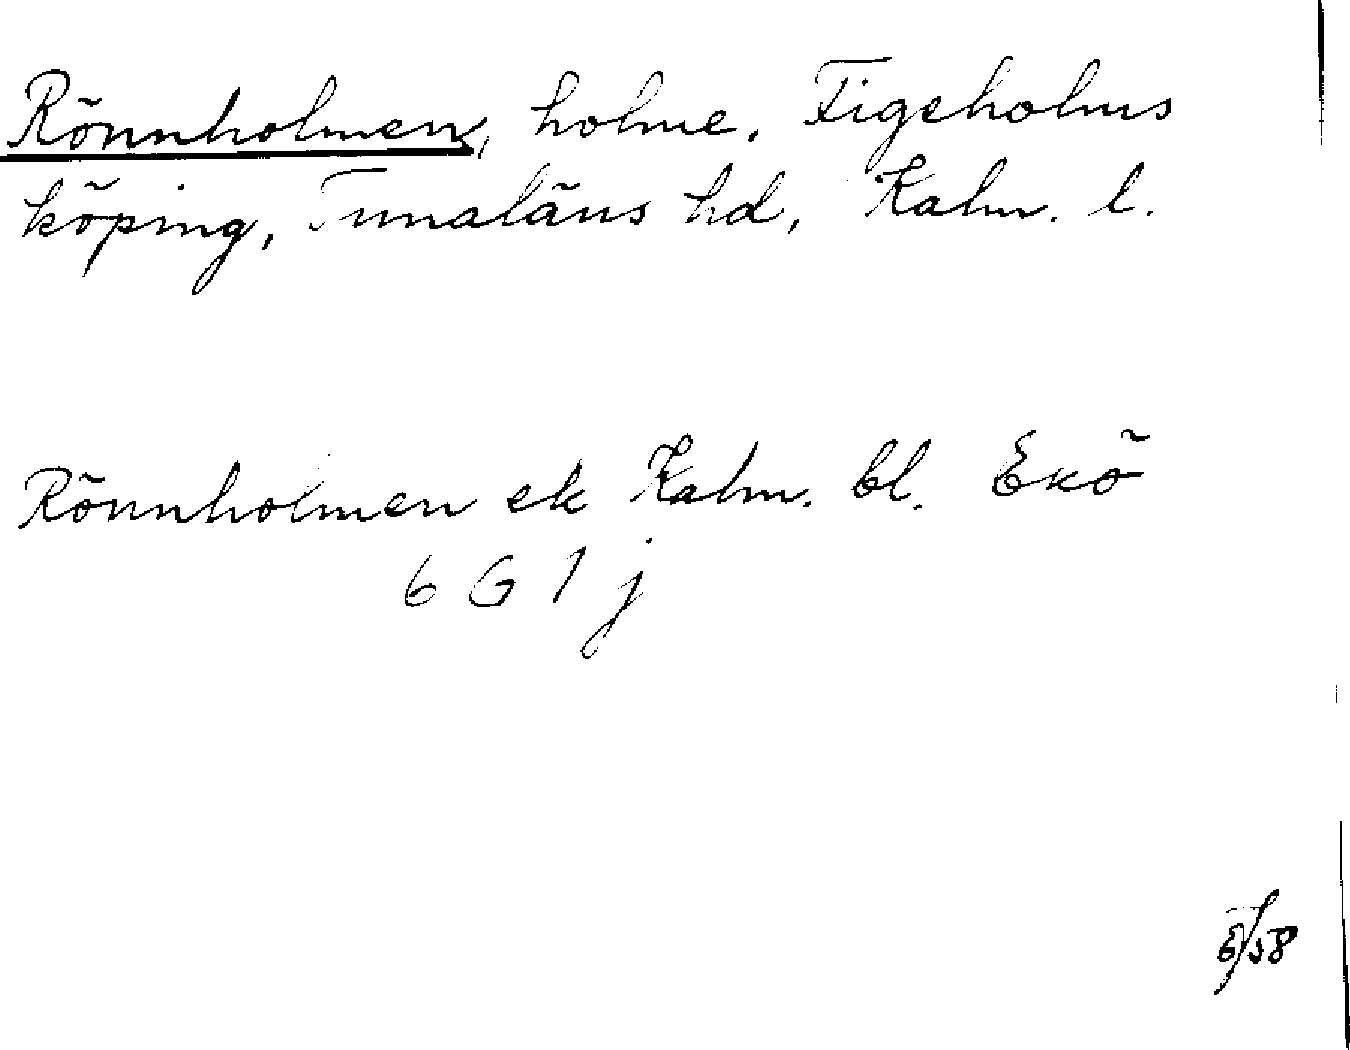 Rönnholmen, holme, Figeholms
köping, Tunaläns hd, Kalm. l.
Rönnholmen ek Kalm. bl. Ekö
6 G 1 j